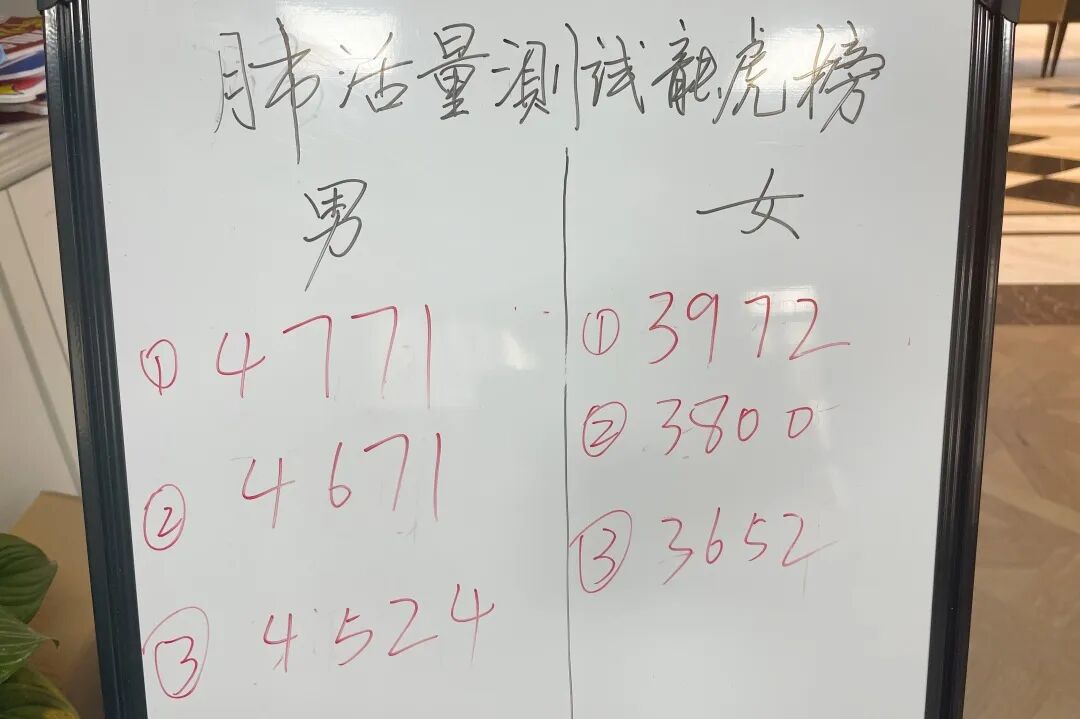 肺活量测试龍虎榜
男
① 4771
② 4671
③ 4524
女
① 3972
② 3800
③ 3652